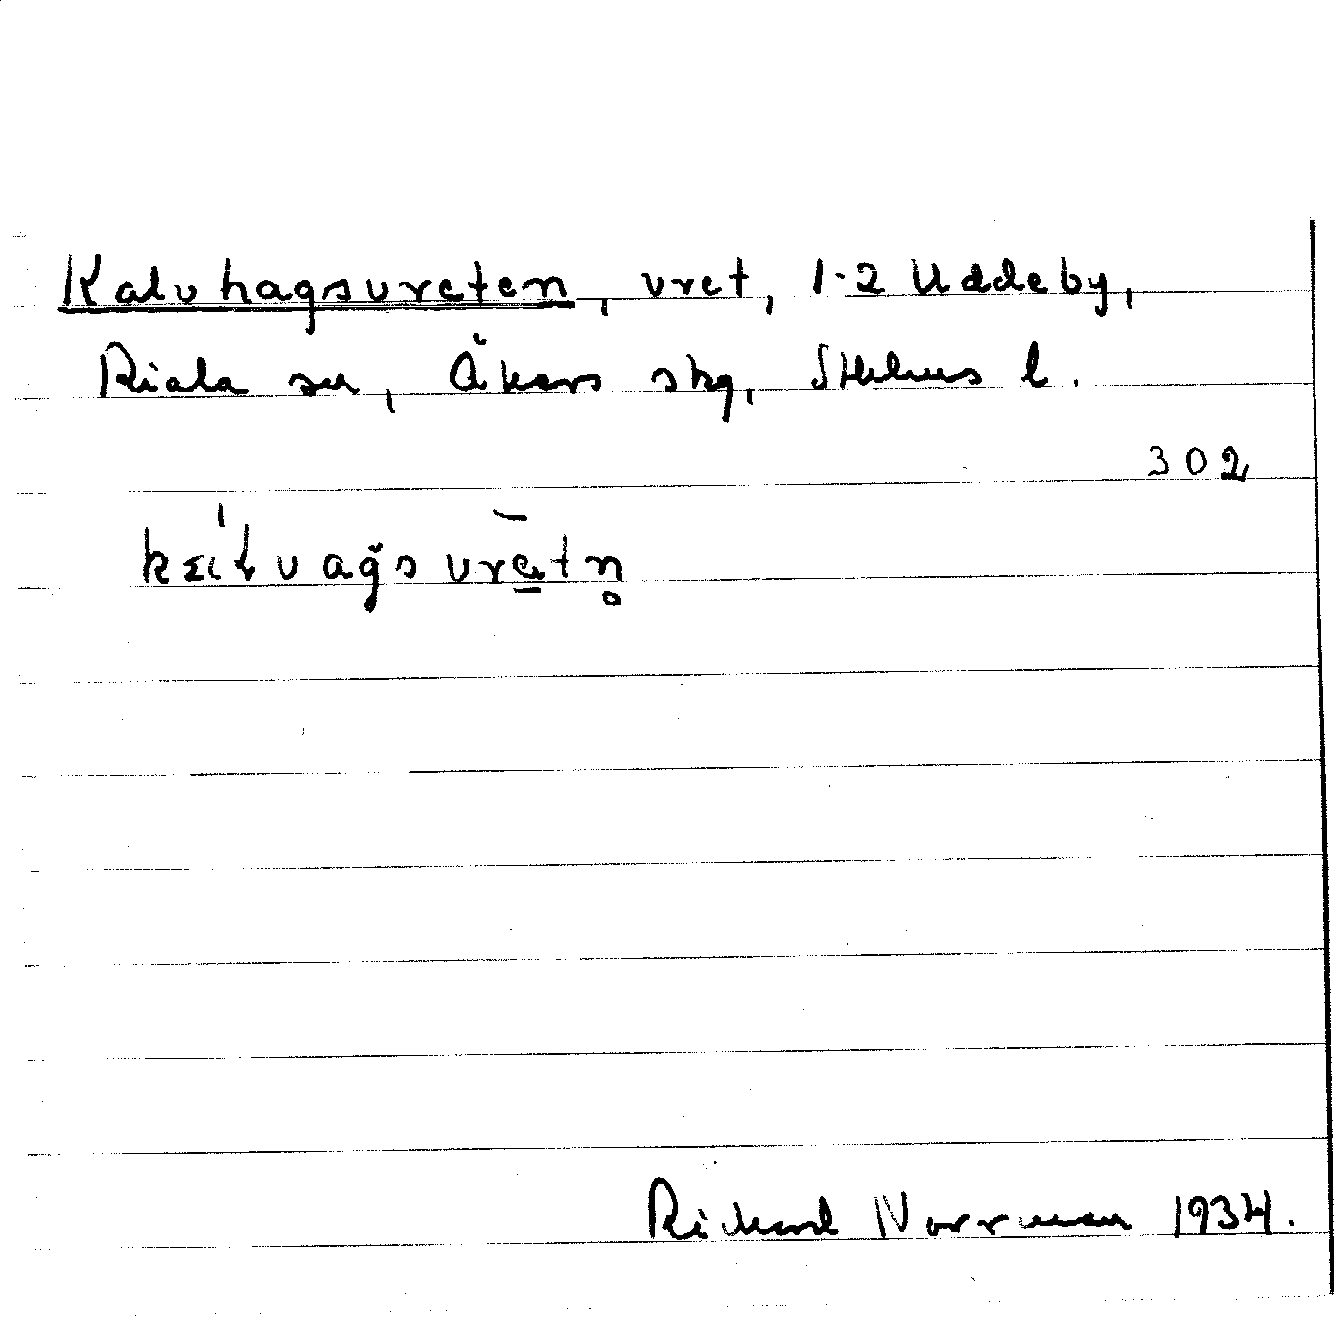 Kalvhagsvreten, vret, 1-2 Uddeby,
Riala sn, Åkers skg, Sthlms l.
302
Rickard Norrman 1934.